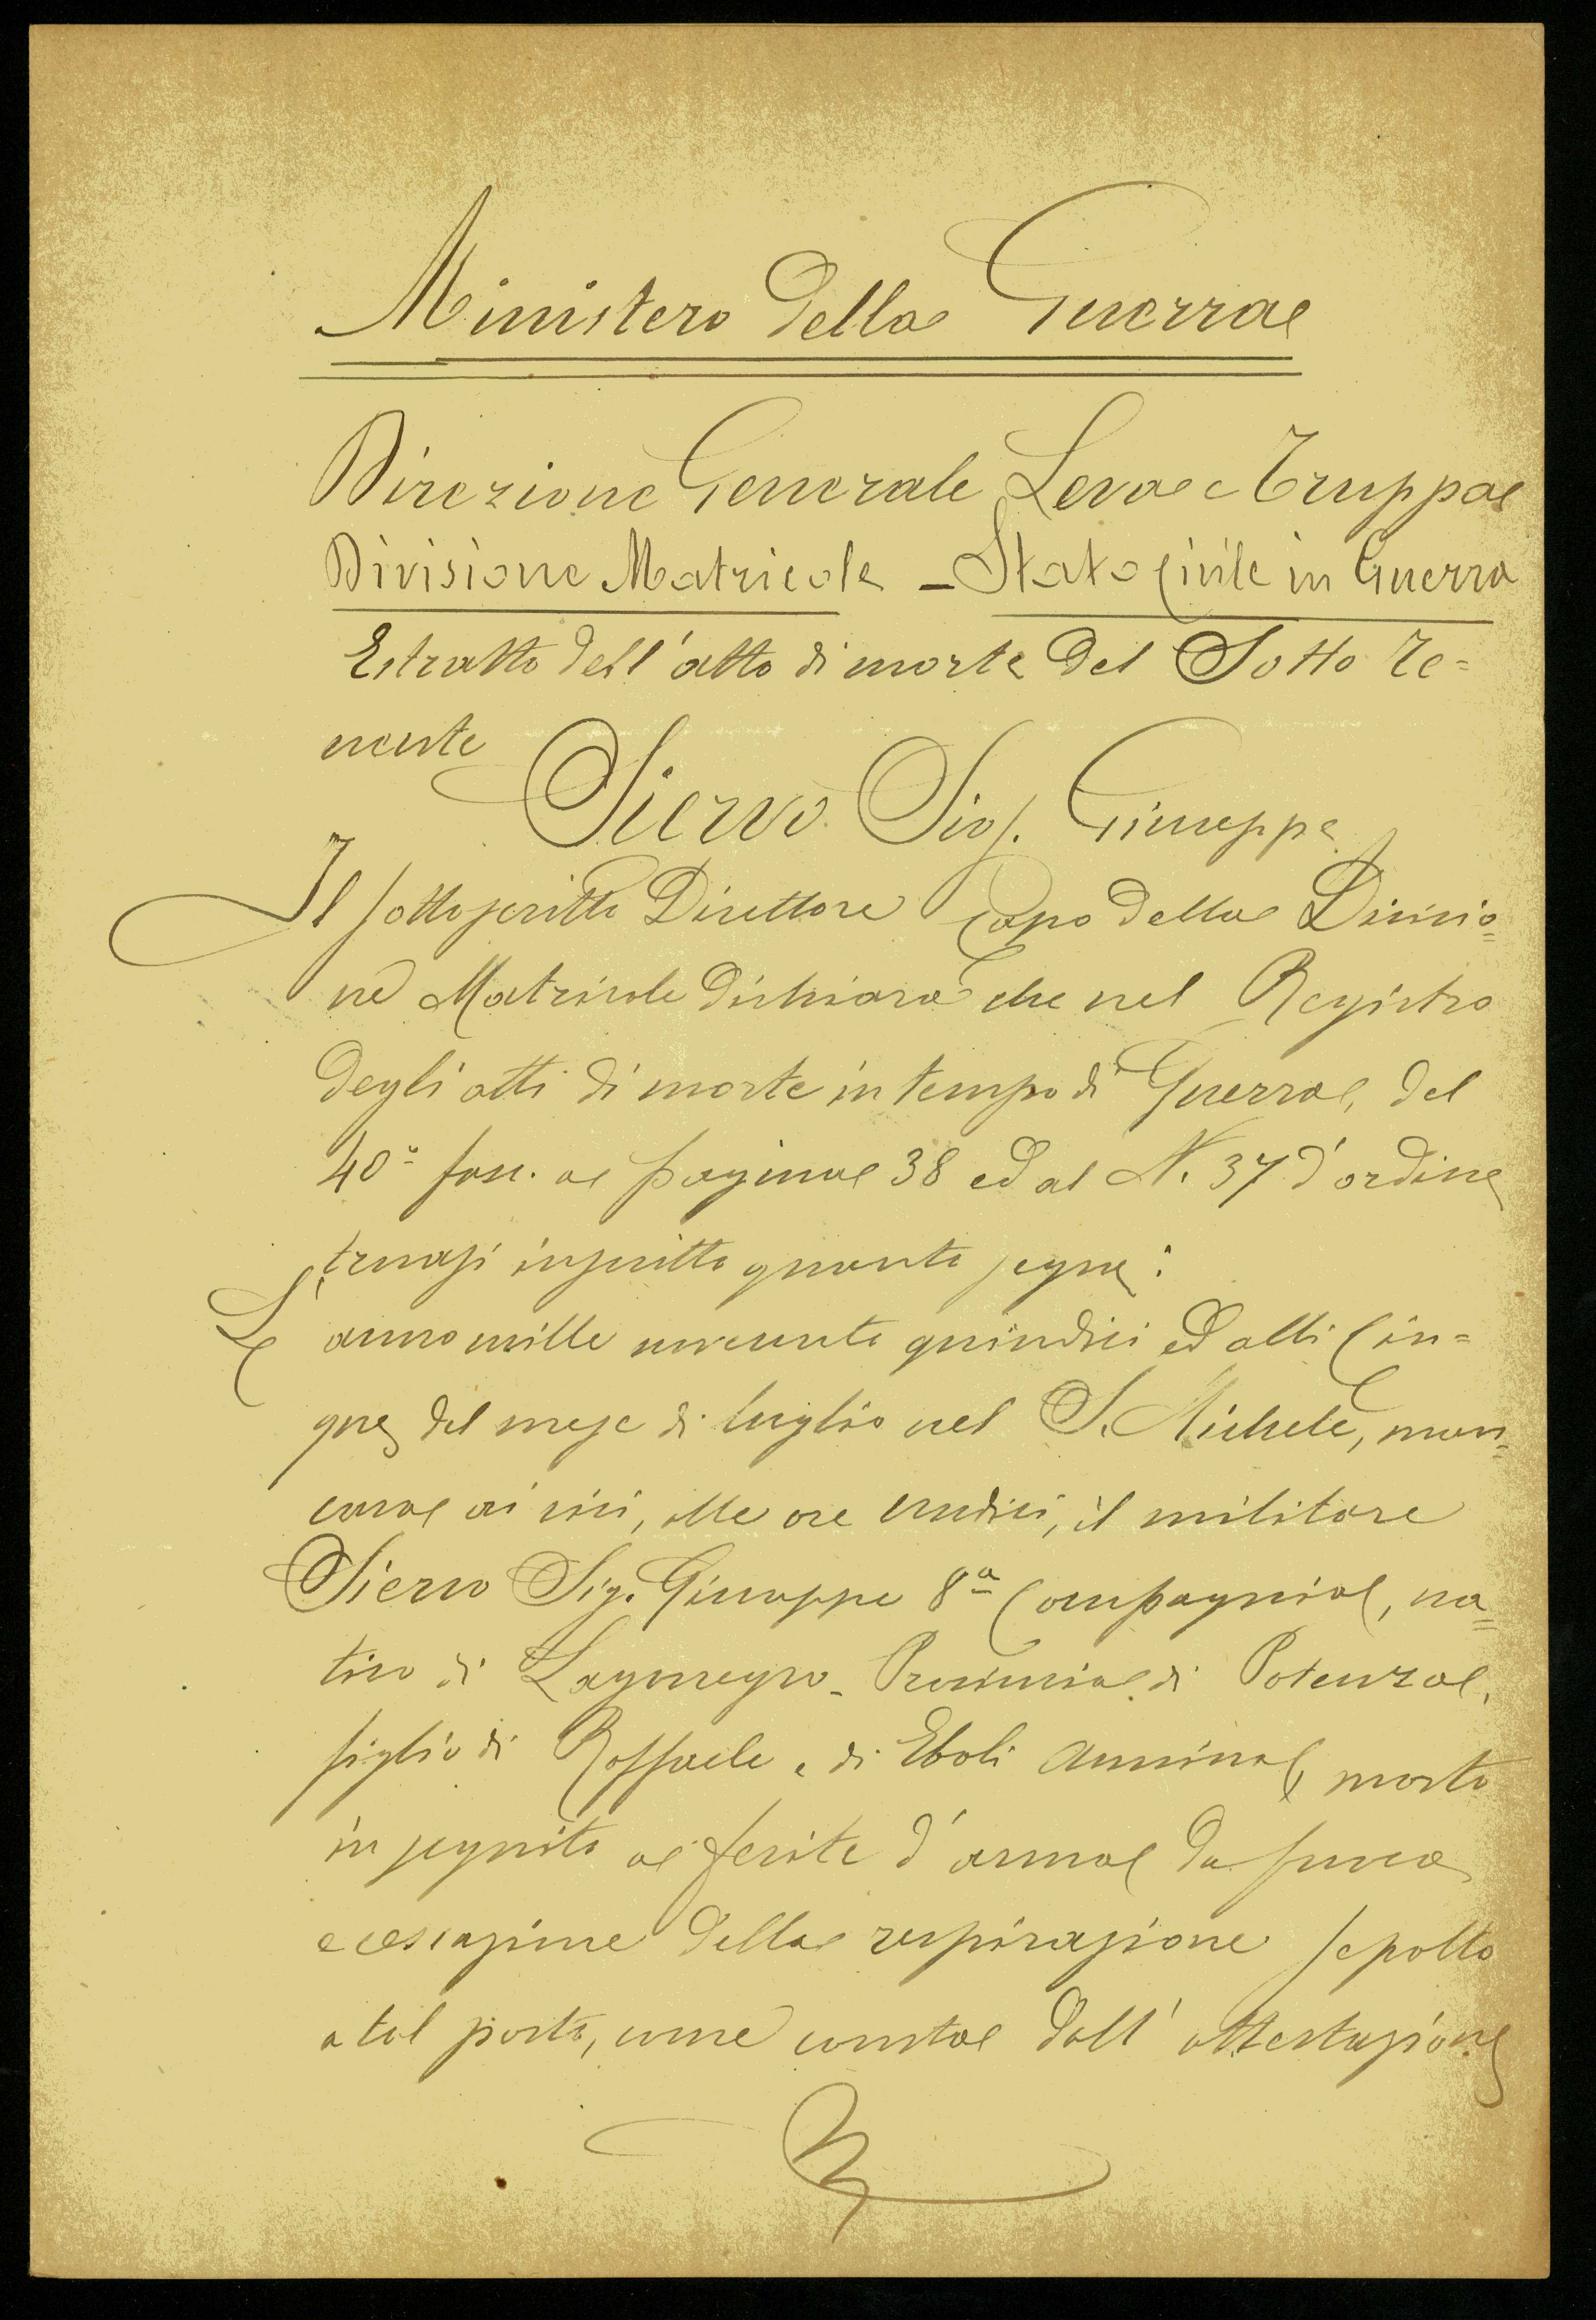 Ministero della Guerra
Direzione Generale Leva e Truppa
Divisione Matricole - Stato Civile in Guerra
Estratto dell'atto di morte del Sotto Te=
nente
Siervo Sig. Giuseppe
Il sottoscritto Direttore Capo della Divisio=
ne Matricole dichiara che nel Registro
degli atti di morte in tempo di Guerra, del
40° fan. a pagina 38 ed al N. 37 d'ordine
trovasi inscritto quanto segue:
L'anno mille novecento quindici ed alli Cin=
que del mese di luglio nel S. Michele, man=
cava ai vivi, alle ore undici, il militare
Siervo Sig. Giuseppe 8ª Compagnia, na=
tivo di Lagonegro - Provincia di Potenza,
figlio di Raffaele e di Eboli Annina, morto
in seguito a ferite d'arma da fuoco
e cessazione della respirazione sepolto
a tal posto, come consta dall'attestazione